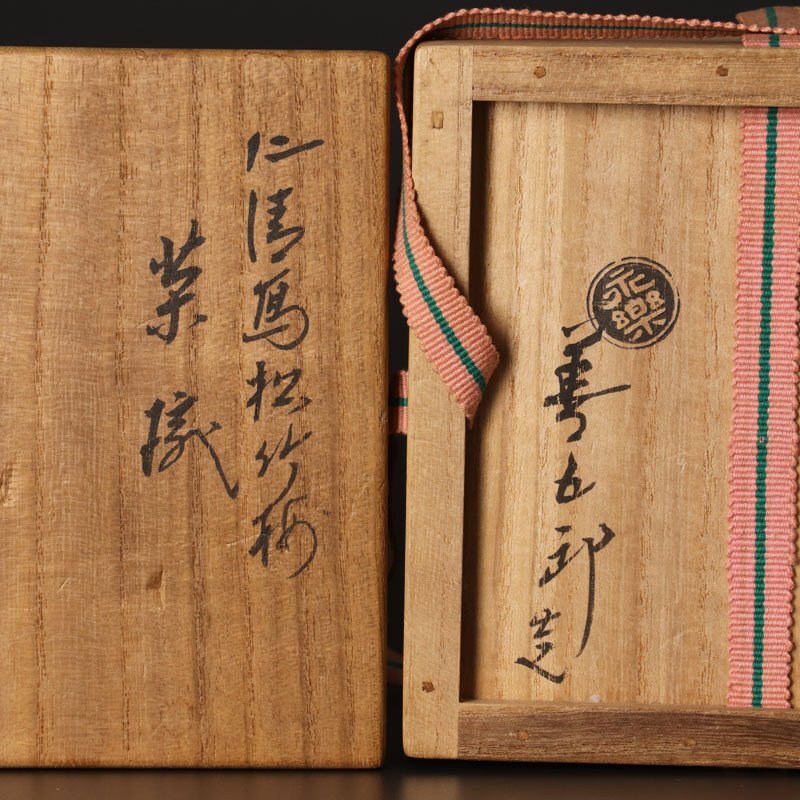 仁清写松竹梅
茶碗
永樂
善五郎造